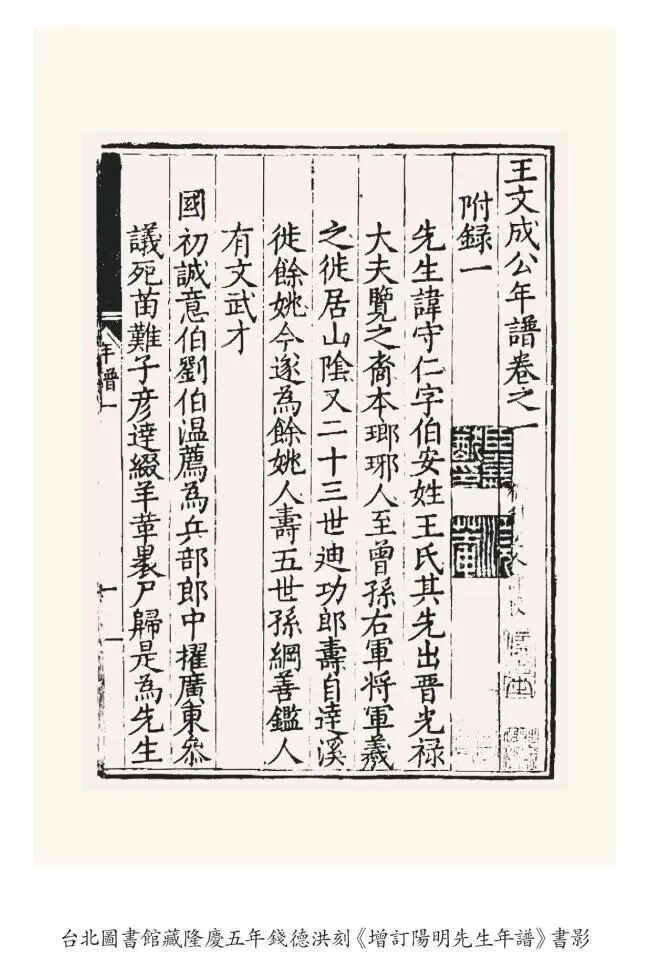 王文成公年譜卷之一
附録一
先生諱守仁字伯安姓王氏其先出晋光禄
大夫覽之裔本瑯琊人至曾孫右軍将軍羲
之徙居山陰又二十三世迪功郎壽自達溪
徙餘姚今遂為餘姚人壽五世孫綱善鑑人
有文武才
國初誠意伯劉伯温薦為兵部郎中擢廣東叅
議死苗難子彦達綴羊革裹尸歸是為先生
年譜一
一
台北圖書館藏隆慶五年錢德洪刻《增訂陽明先生年譜》書影